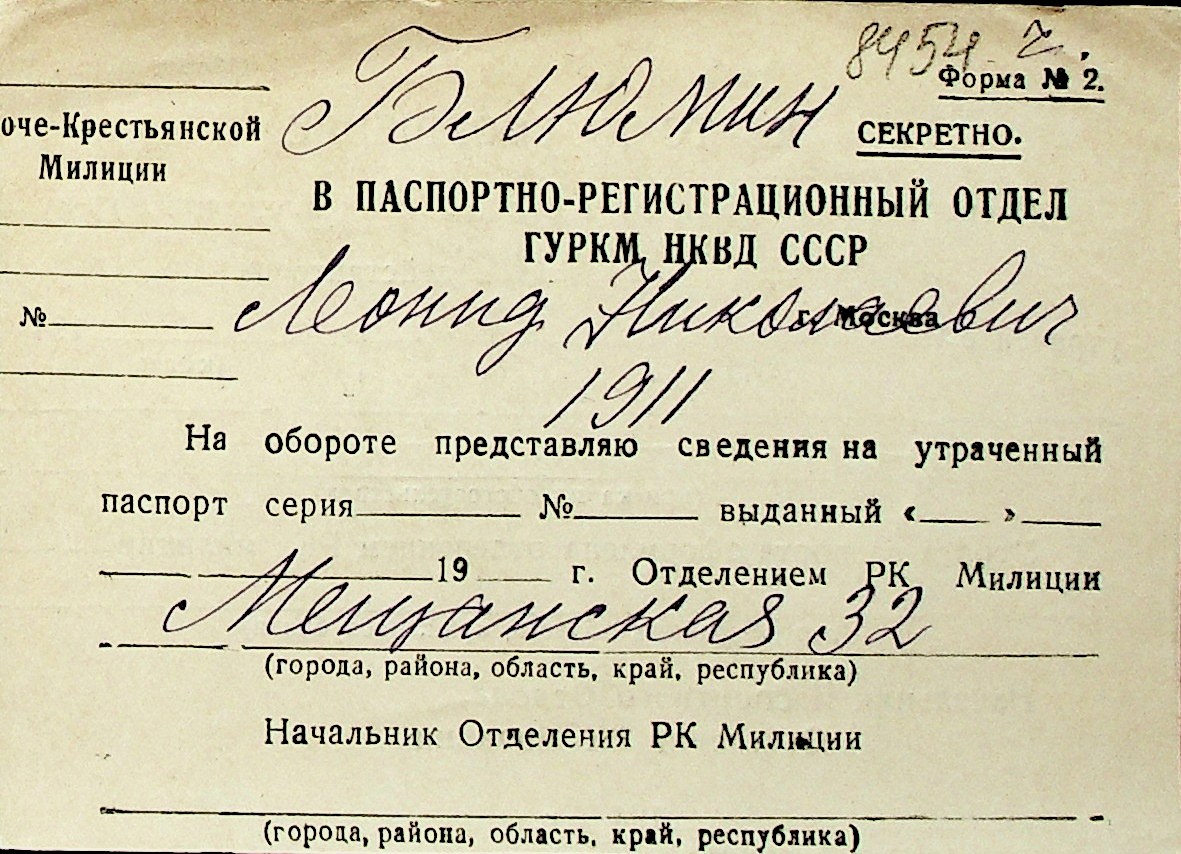 8454 г.
Форма № 2.
Блюмин
оче-Крестьянской
СЕКРЕТНО.
Милиции
В ПАСПОРТНО-РЕГИСТРАЦИОННЫЙ ОТДЕЛ
ГУРКМ НКВД СССР
Леонид Николаевич
№
г. Москва
1911
На обороте представляю сведения на утраченный
паспорт серия № выданный « »
19 г. Отделением РК Милиции
Мещанская 32
(города, района, область, край, республика)
Начальник Отделения РК Милиции
(города, района, область, край, республика)